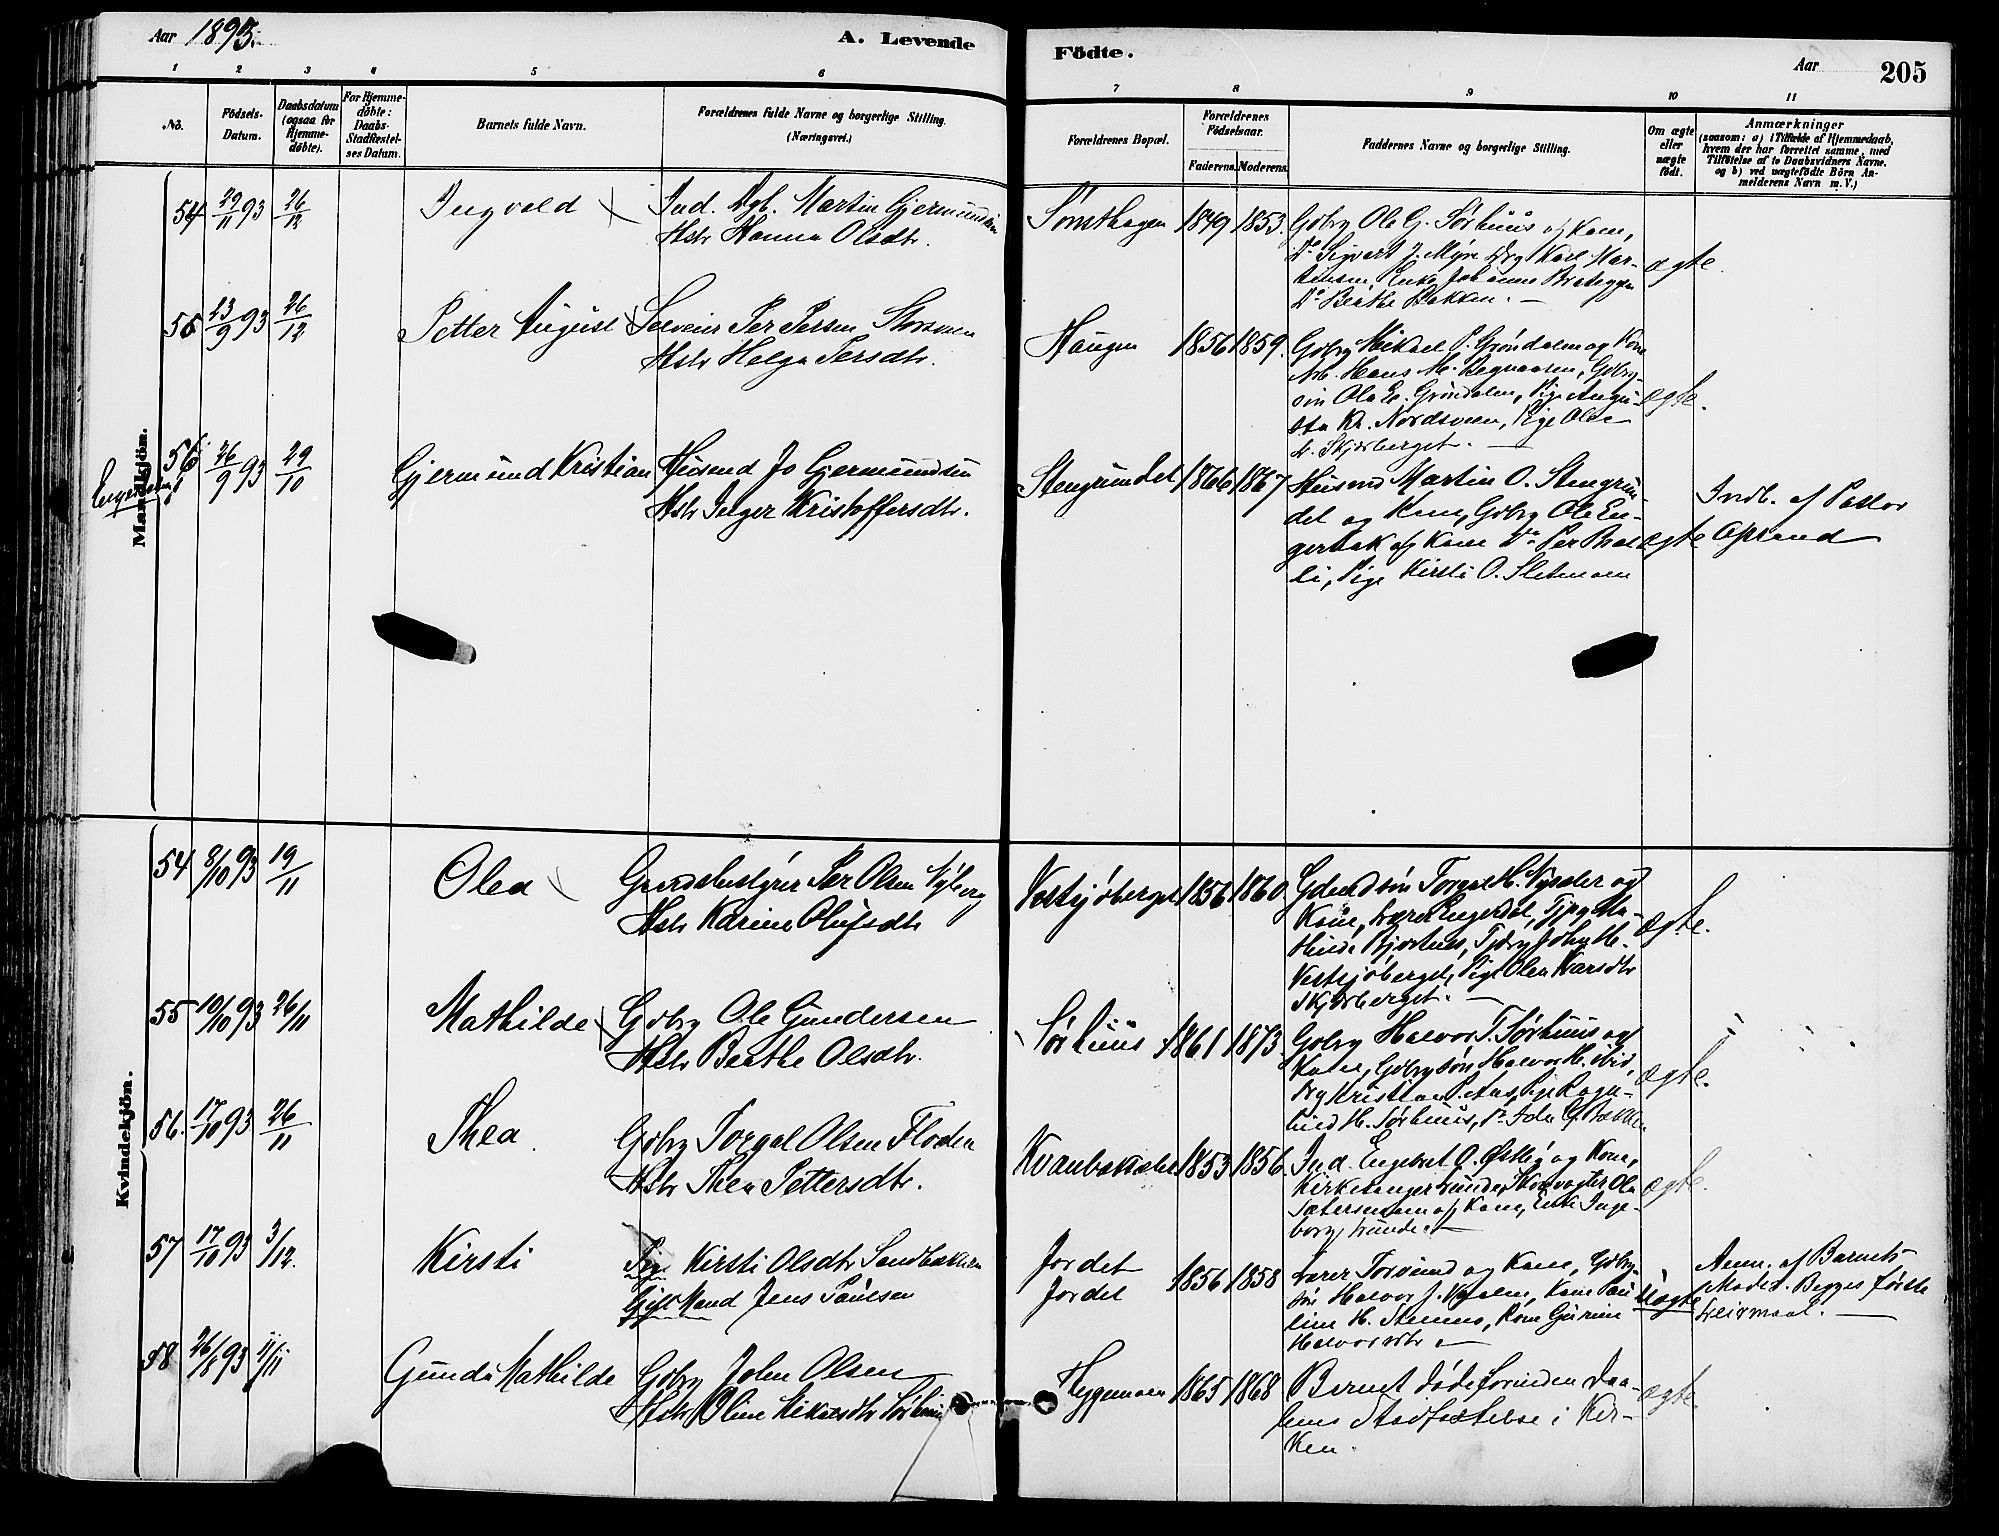 Aar 1893.
A. Levende
Födte.
Aar
205
1 2 3 4 5 6 7 8 9 10 11
No.
Födsels-Datum.
Daabsdatum (ogsaa for Hjemme-döbte).
For Hjemme-döbte: Daabs-Stadfæstel-ses Datum.
Barnets fulde Navn.
Forældrenes fulde Navne og borgerlige Stilling. (Næringsvei.)
Forældrenes Bopæl.
Forældrenes Födselsaar.
Faderens. Moderens.
Faddernes Navne og borgerlige Stilling.
Om ægte eller uægte födt.
Anmærkninger
(saasom: a) i Tilfælde af Hjemmedaab,
hvem der har forrettet samme, med
Tilföielse af to Daabsvidners Navne,
og b) ved uægtefödte Börn An-
melderens Navn m. V.)
Mandkjön.
54 29/11 93 26/12 Ingvald Ind. Dgl. Martin Gjermundsen
Hstr Hanna Olsdtr.
1849 1853. Gdbrg Ole G. Sørhuus og Kone,
Do Sigvart J. Myre Karl Mar-
tinsen, Enke Johanne
Do Berthe Bakken.
ægte.
55 23/9 93 26/12 Petter August Per Persen
Hstr Helga Persdtr.
Haugen 1856 1859. Gdbrg Mikael P. Grøndalen og Kone
Arb. Hans M. Gdbrg-
søn Ola E. Grøndalen, Pige Augu-
sta Kr. Nordsveen, Pige Olea
Skjærberget.
ægte.
Engerdalen
56 26/9 93 29/10 Gjermund Kristian Husmd Jo Gjermundsen
Hstr Inger Kristoffersdtr.
Stengrundet 1866 1867 Husmd Martin O. Stengrun-
det og Kone, Gdbrg Ole En-
gerbak og Kone Do Per
li, Pige Kirsti O. Sletmoen
ægte
Indb. af Pastor
Opsand
Kvindekjön.
54 8/10 93 19/11 Olea Gaardsbestyrer Per Olsen Nyberg
Hstr Karine Olufsdtr
Vestsjøberget 1856 1860. Torgal H. Nysæter og
Kone, Lærer Engerdal, Tjpg Ma-
thilde Tjdrg John H.
Vestsjøberget, Pige Olea
Skjærberget.
ægte.
55 10/10 93 26/11 Mathilde Gdbrg Ole Gundersen
Hstr Berthe Olsdtr.
Sørhuus 1861 1873. Gdbrg Halvor T. Sørhuus og
Kone, Gdbrgsøn Halvor H. ibid,
Kristian P. Aas, Pige Ragn-
hild H. Sørhuus,
ægte.
56. 17/10 93 26/11 Thea Gdbrg Torgal Olsen Floden
Hstr Thea Pettersdtr.
Kvanbeksæter 1853 1856. Ind. Engebret O. Østby og Kone,
Kirkesanger Skovvogter Ola
Sætersmoen og Kone, Enke Inge-
borg
ægte.
57 17/10 93 3/12. Kirsti Pige Kirsti Olsdtr Sandbakken
Gift Mand Jens Paulsen
Jordet
Jordet
1856 1858 Lærer Torsund og Kone, Gdbrg-
søn Halvor J. Kone Pau-
line H. Stenmo, Kone Gurine
Halvorsdtr
uægte
Anm. af Barnets
Moder. Begges første
Leiermaal.
58 26/8 93 11/11 Gunda Mathilde Gdbrg John Olsen
Hstr Oline Mikaelsdtr Sørhuus
Heggemoen 1865 1868 Barnet døde forinden Daa-
bens Stadfæstelse i Kir-
ken.
ægte.